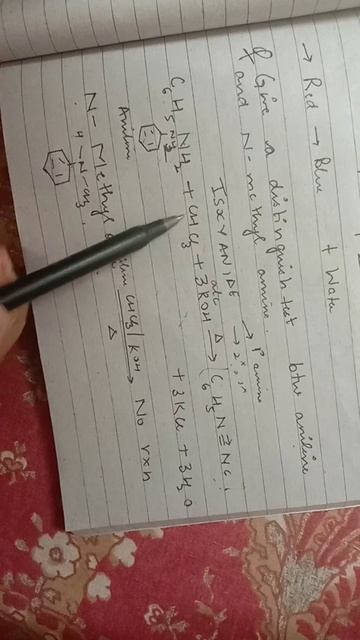 → Red → Blue + Wate
Q Give a distinguish test btw aniline
and N-methyl amine.
→ 1° amine
ISOCYANIDE → 2°, 3°
C6H5NH2 + CHCl3 + 3KOH alc Δ → C6H5N≡NC↓
+ 3KCl + 3H2O
NH2
Aniline
N-Methyl CHCl3/KOH Δ → No rxn
H-N-CH3